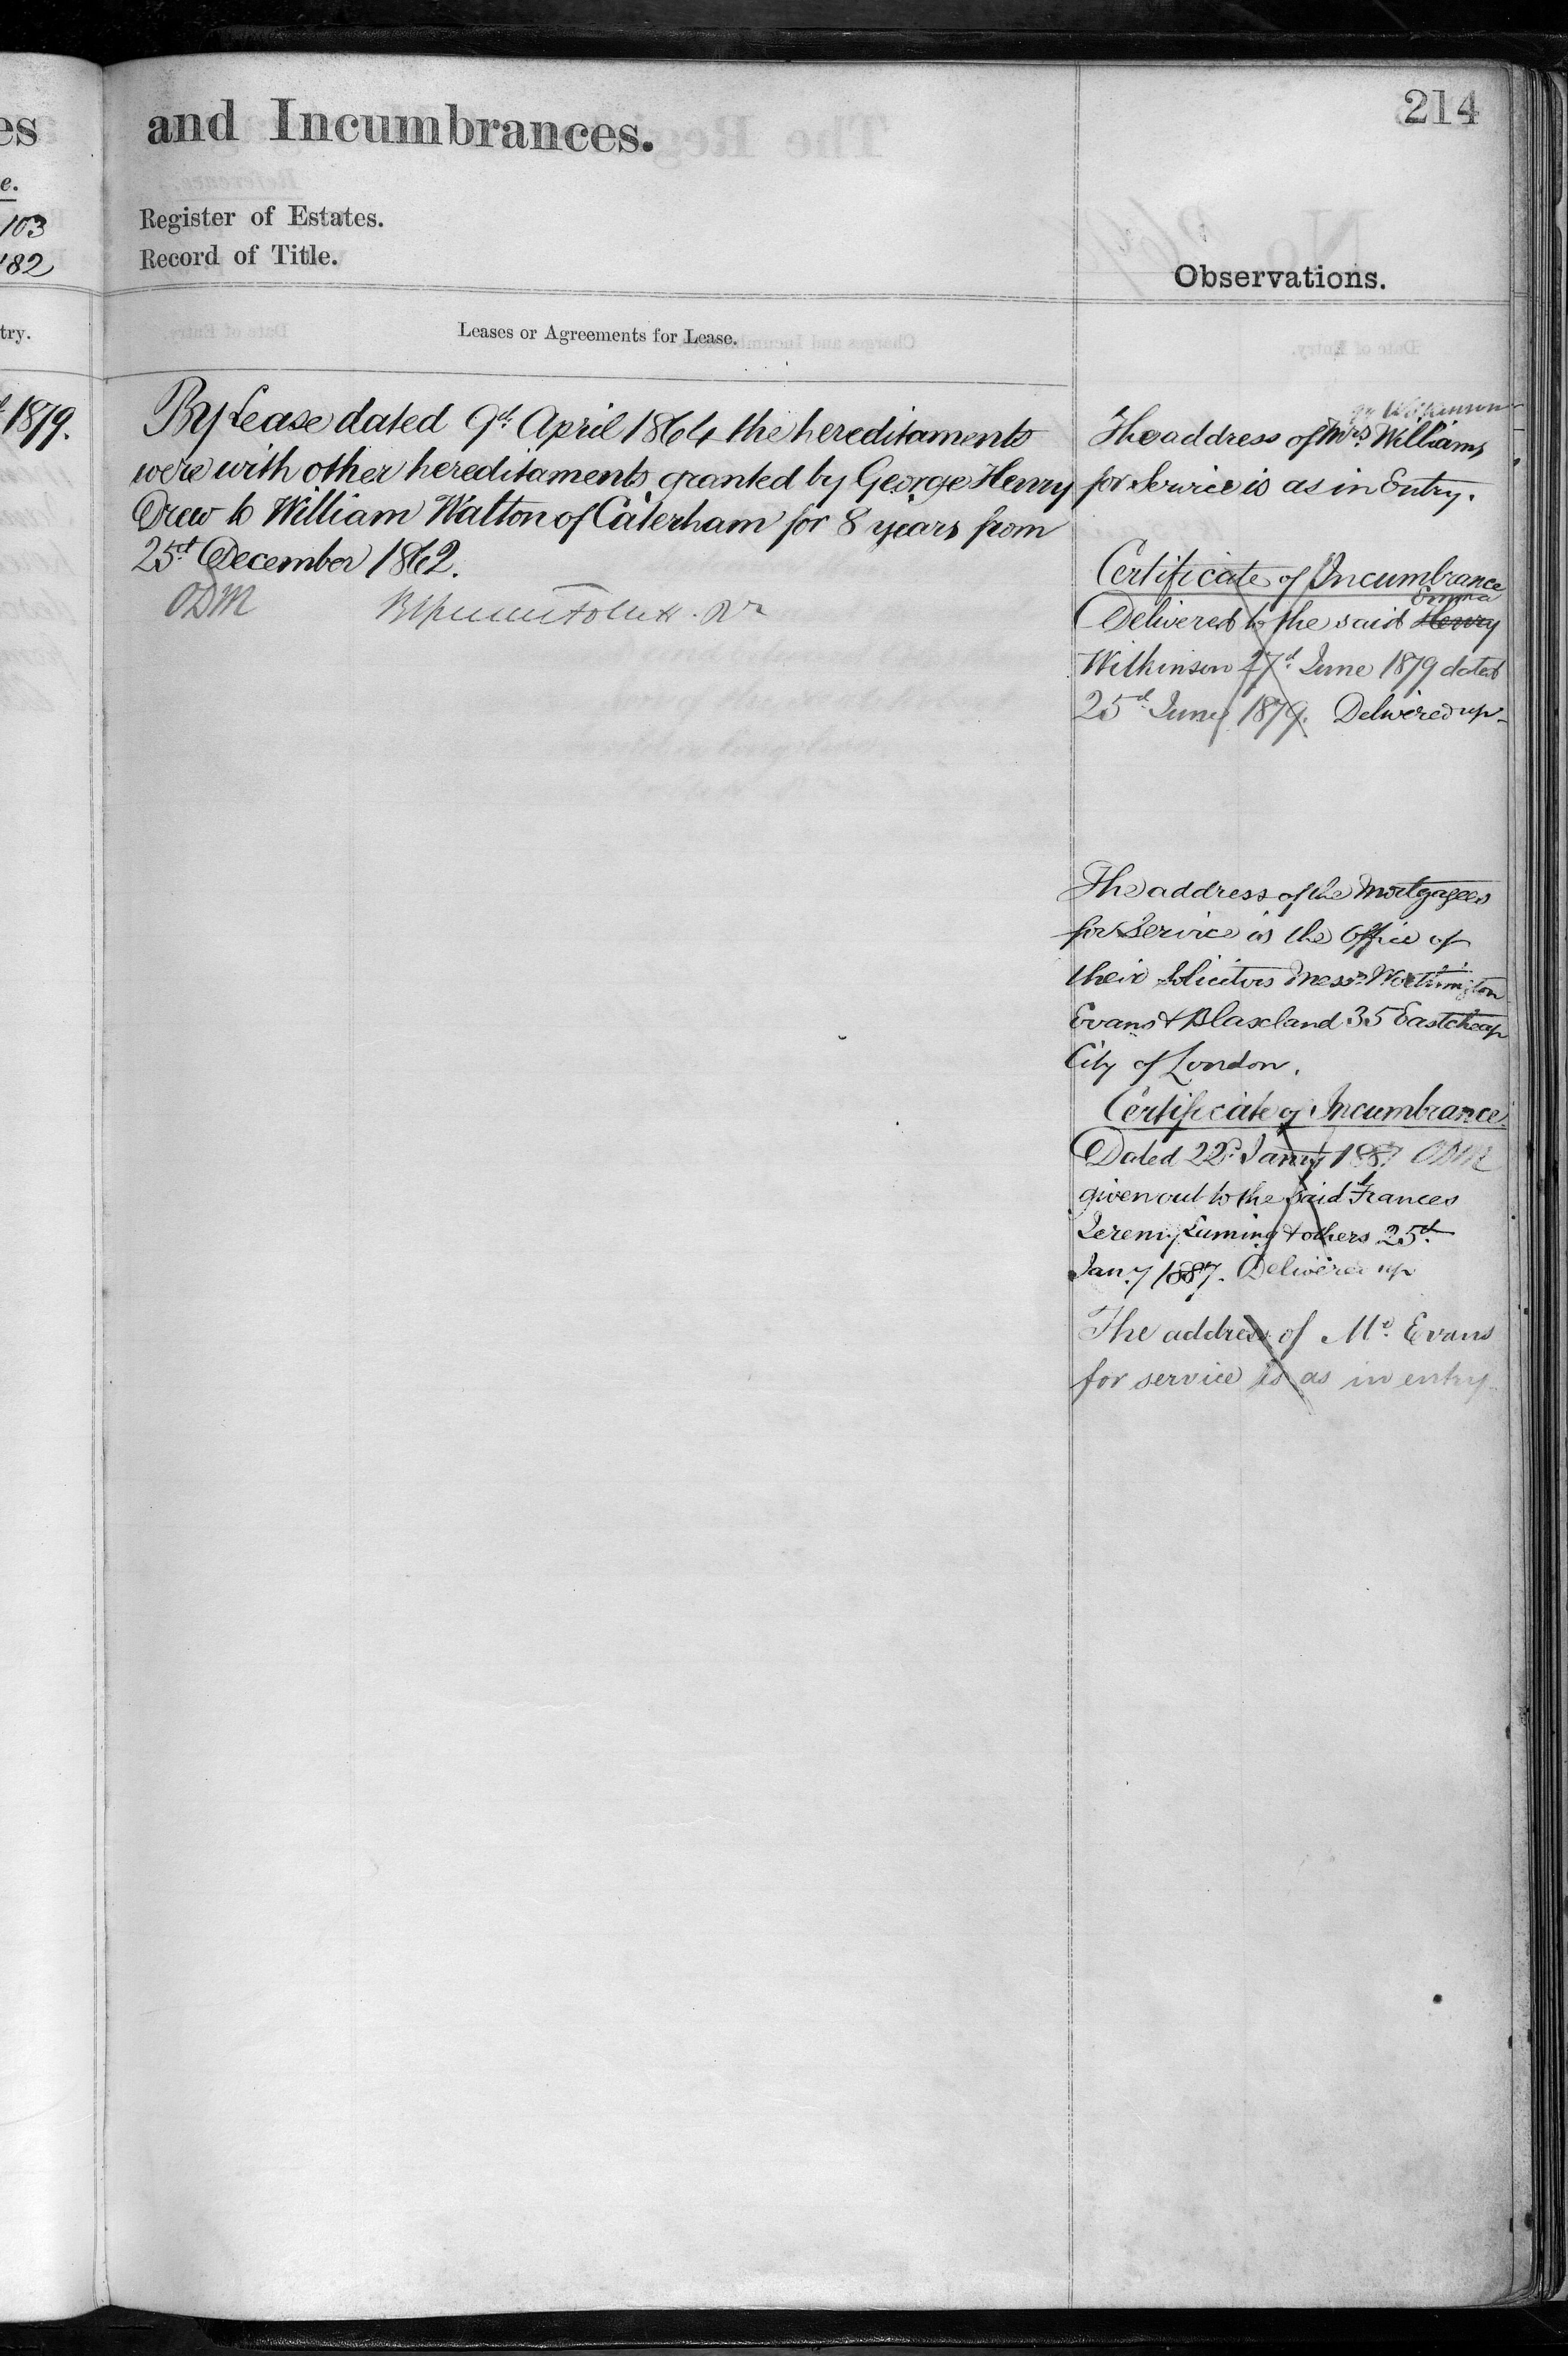 es
e.
103
182
try.
1879.
214
and Incumbrances.
Register of Estates.
Record of Title.
Leases or Agreements for Lease.
By Lease dated 9th April 1864 the hereditaments
were with other hereditaments granted by George Henry
Drew to William Walton of Caterham for 8 years from
25th December 1862.
ODM
Observations.
The address of Mrs Williams
for Service is as in Entry.
Certificate of Incumbrance
Emma
Delivered to the said Henry
Wilkinson 27th June 1879 dated
25th June 1879. Delivered up
The address of the Mortgagees
for Service is the Office of
their Solicitors Messrs Worthington
Evans & Blaxland 35 Eastcheap
City of London.
Certificate of Incumbrance
Dated 22d Jany 1887 ODM
given out to the said Frances
Jeremy Luming & others 25th
Jany 1887. Delivered up
The address of Mr. Evans
for service is as in entry